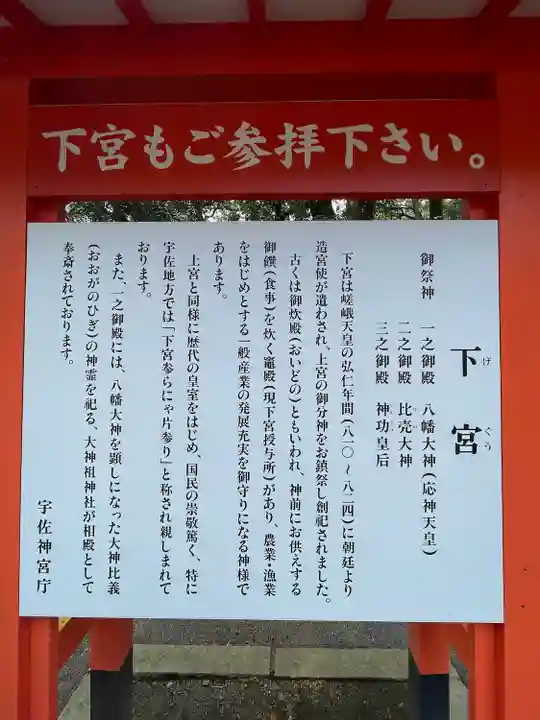 下宮もご参拝下さい。
下宮
げぐう
御祭神 一之御殿 八幡大神(応神天皇)
二之御殿 比売大神
三之御殿 神功皇后
下宮は嵯峨天皇の弘仁年間(八一〇〜八二四)に朝廷より
造宮使が遣わされ、上宮の御分神をお鎮祭し創祀されました。
古くは御炊殿(おいどの)ともいわれ、神前にお供えする
御饌(食事)を炊く竈殿(現下宮授与所)があり、農業・漁業
をはじめとする一般産業の発展充実を御守りになる神様で
あります。
上宮と同様に歴代の皇室をはじめ、国民の崇敬篤く、特に
宇佐地方では「下宮参らにゃ片参り」と称され親しまれて
おります。
また、一之御殿には、八幡大神を顕しになった大神比義
(おおがのひぎ)の神霊を祀る、大神祖神社が相殿として
奉斎されております。
宇佐神宮庁